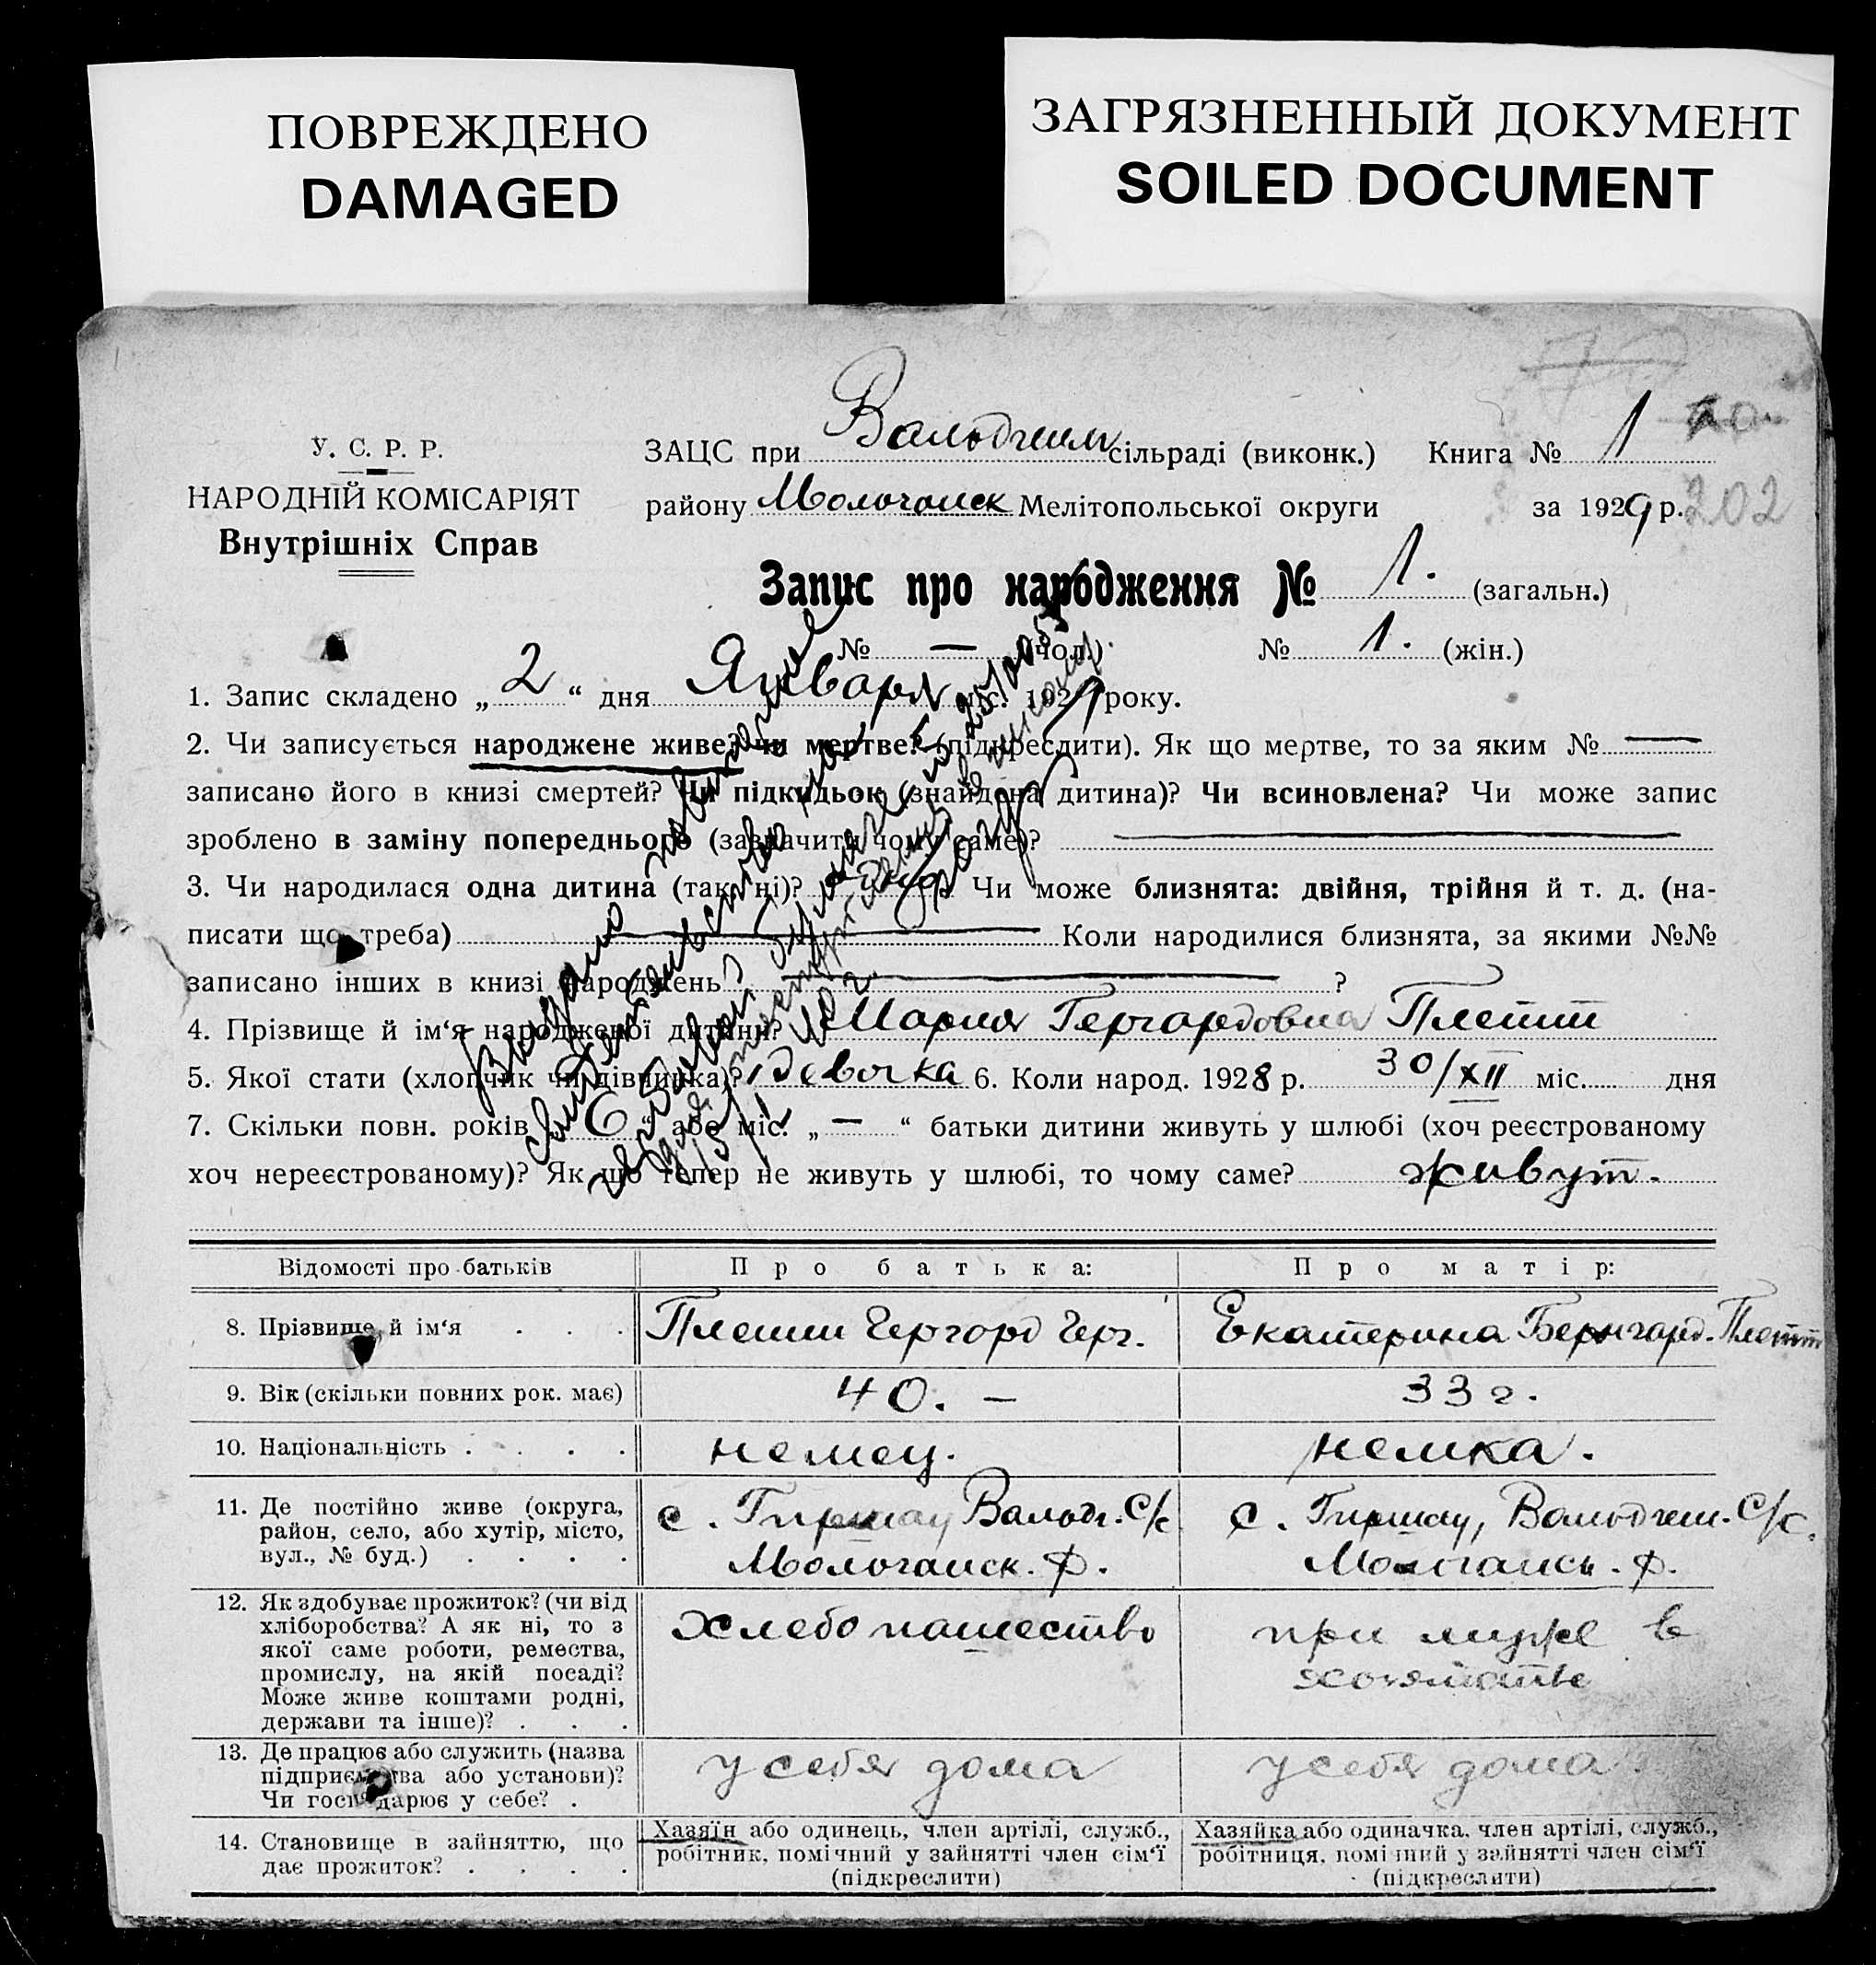 ПОВРЕЖДЕНО
DAMAGED
ЗАГРЯЗНЕННЫЙ ДОКУМЕНТ
SOILED DOCUMENT
У. С. Р. Р.
НАРОДНІЙ КОМІСАРІЯТ
Внутрішніх Справ
ЗАЦС при Вальдгейм сільраді (виконк.) Книга № 1
району Молочанск Мелітопольської округи за 1929 р. 202
Запис про народження № 1. (загальн.)
№ — (чол.) № 1. (жін.)
1. Запис складено „ 2 “ дня Января міс. 1929 року.
2. Чи записується народжене живе? чи мертве? (підкреслити). Як що мертве, то за яким № —
записано його в книзі смертей? Чи підкидьок (знайдена дитина)? Чи всиновлена? Чи може запис
зроблено в заміну попереднього (зазначити чому саме)? —
3. Чи народилася одна дитина (так, ні)? одна Чи може близнята: двійня, трійня й т. д. (на-
писати що треба) — Коли народилися близнята, за якими №№
записано інших в книзі народжень — ?
4. Прізвище й ім‘я народженої дитини? Мария Гергардовна Плетт
5. Якої стати (хлопчик чи дівчинка)? девочка 6. Коли народ. 1928 р. 30/XII міс. дня
7. Скільки повн. років „ 6 “ або міс. „ — “ батьки дитини живуть у шлюбі (хоч реєстрованому
хоч нереєстрованому)? Як що тепер не живуть у шлюбі, то чому саме? живут.
Выдано повторное
свидетельство
Відомості про батьків Про батька: Про матір:
8. Прізвище й ім‘я . . . Плетт Гергард Герг. Екатерина Бернгард. Плетт
9. Вік (скільки повних рок. має) 40. — 33 г.
10. Національність . . . . немец. немка.
11. Де постійно живе (округа,
район, село, або хутір, місто,
вул., № буд.) . . . .
с. Гиршау Вальдг. С/с
Молочанск. р.
с. Гиршау, Вальдгейм. С/с.
Молочанск. р.
12. Як здобуває прожиток? (чи від
хліборобства? А як ні, то з
якої саме роботи, ремества,
промислу, на якій посаді?
Може живе коштами родні,
держави та інше)? . . .
хлебопашество
при муже в
хозяйстве
13. Де працює або служить (назва
підприємства або установи)?
Чи господарює у себе? .
у себя дома
у себя дома
14. Становище в зайняттю, що
дає прожиток? . . . .
Хазяїн або одинець, член артілі, служб.,
робітник, помічний у зайнятті член сім‘ї
(підкреслити)
Хазяйка або одиначка, член артілі, служб.,
робітниця, помічний у зайнятті член сім‘ї
(підкреслити)